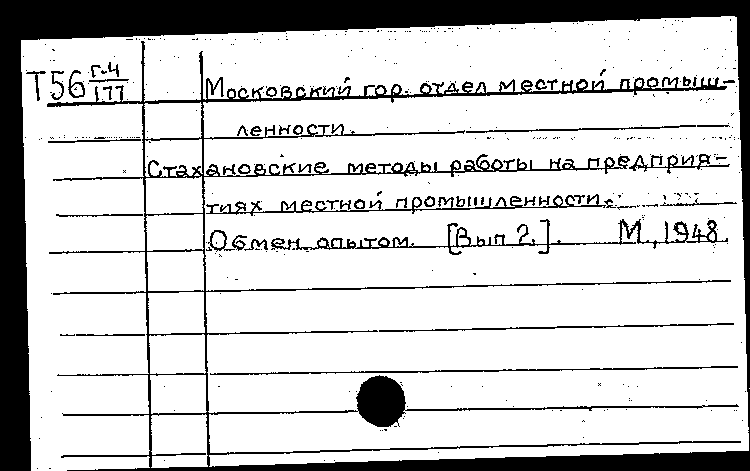 Т56 г-4/177
Московский гор. отдел местной промыш-
ленности.
Стахановские методы работы на предприя-
тиях местной промышленности.
Обмен опытом. [Вып 2.]. М., 1948.